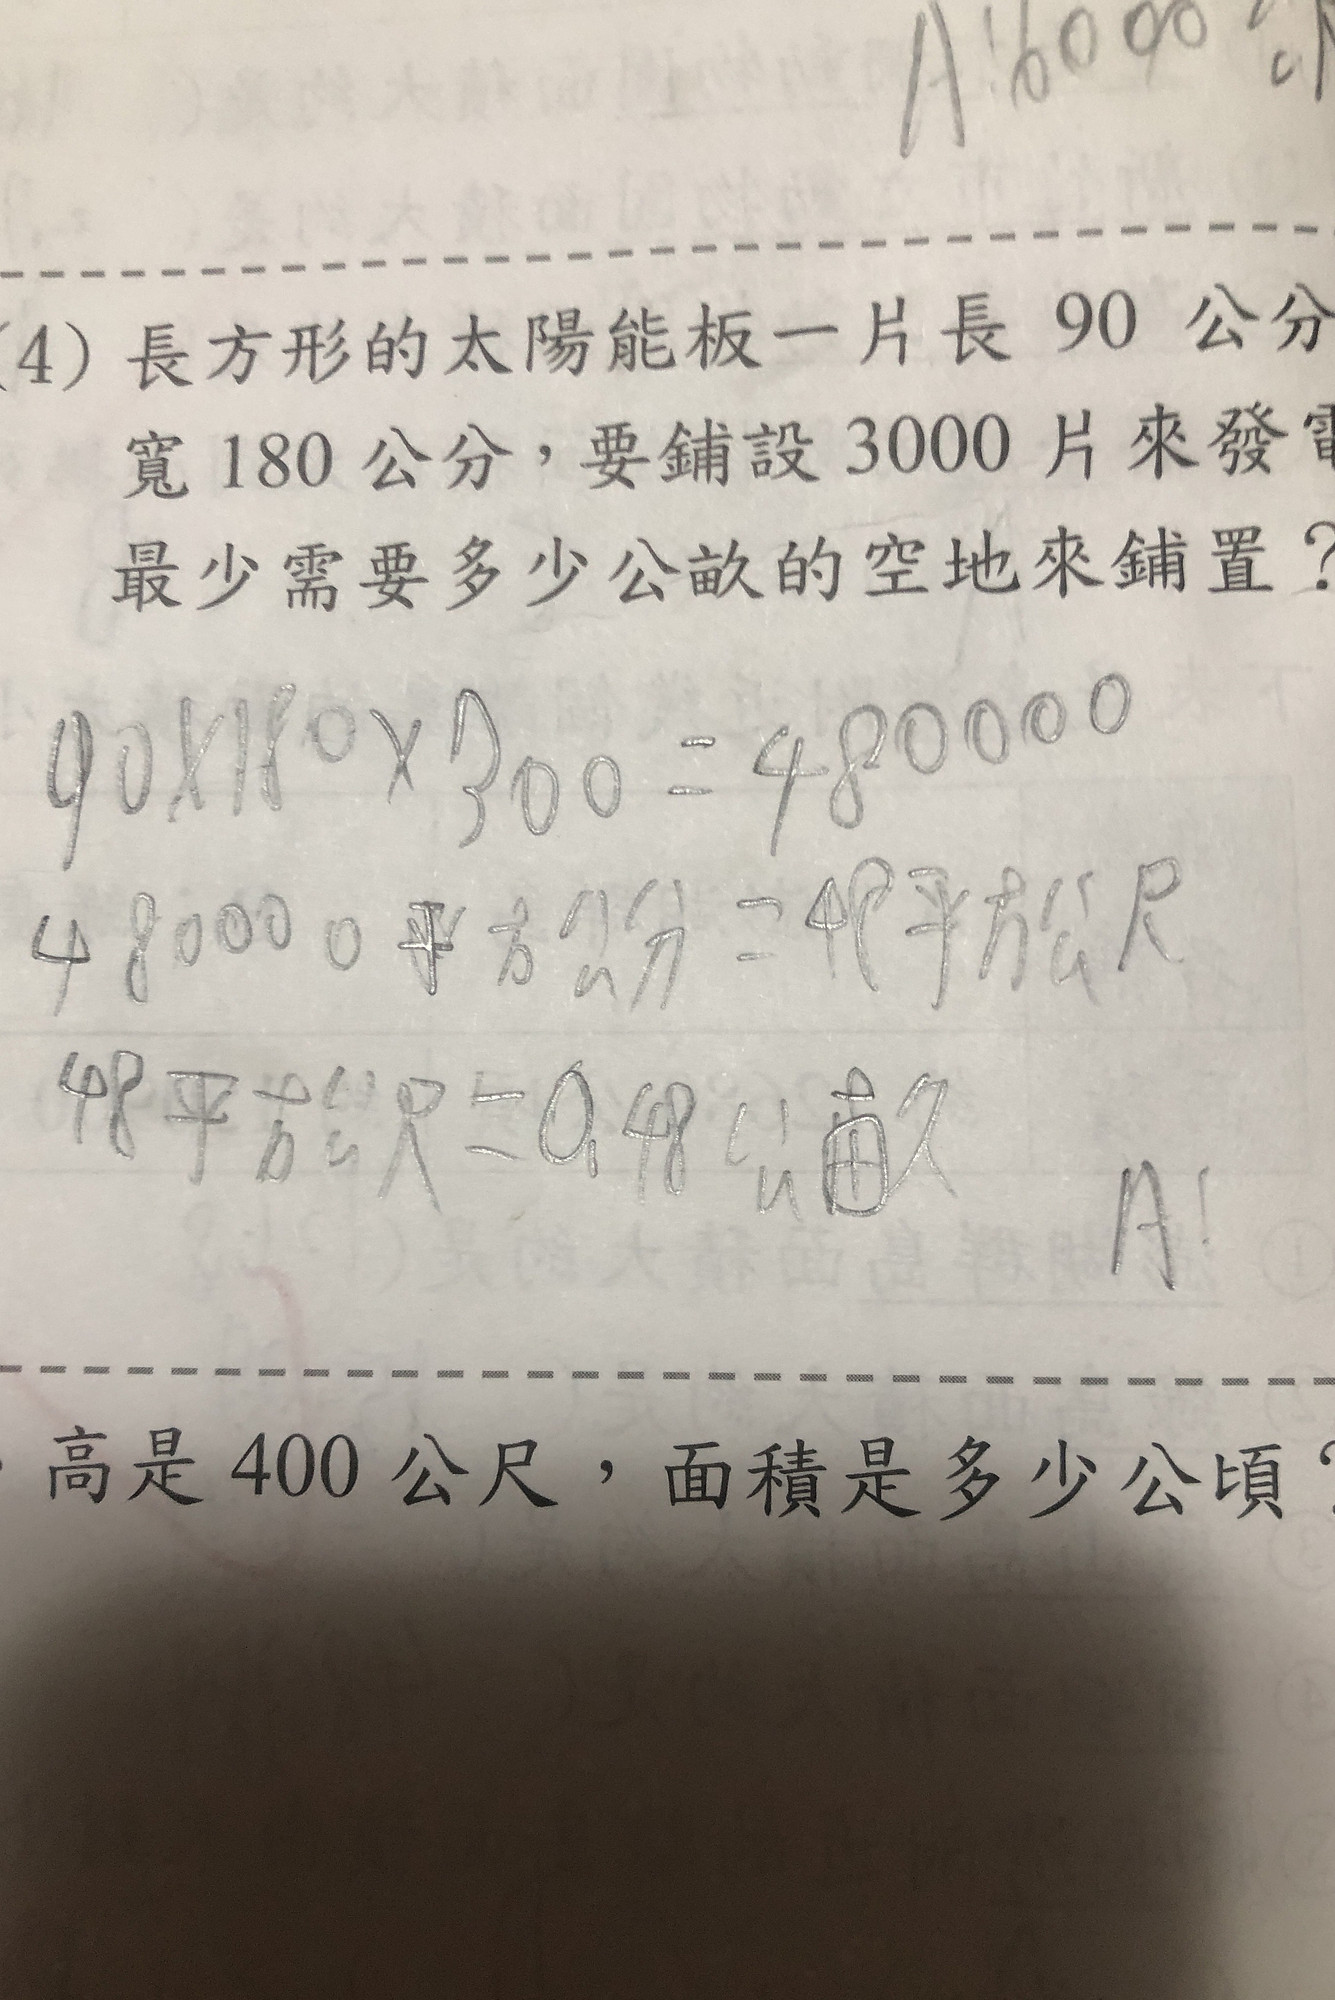 A:6000
(4) 長方形的太陽能板一片長 90 公分
寬 180 公分，要鋪設 3000 片來發電
最少需要多少公畝的空地來鋪置？
90×180×300=480000
480000平方公分=48平方公尺
48平方公尺=0.48公畝
A:
高是 400 公尺，面積是多少公頃？